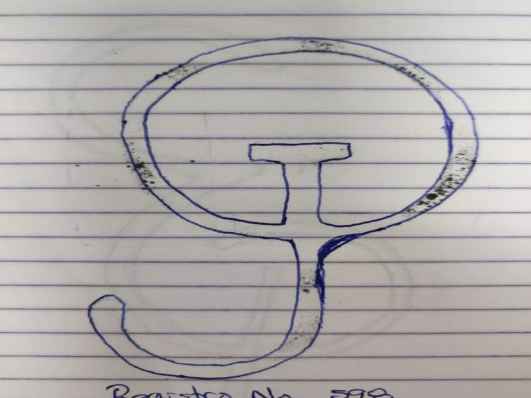 Registro No. 598